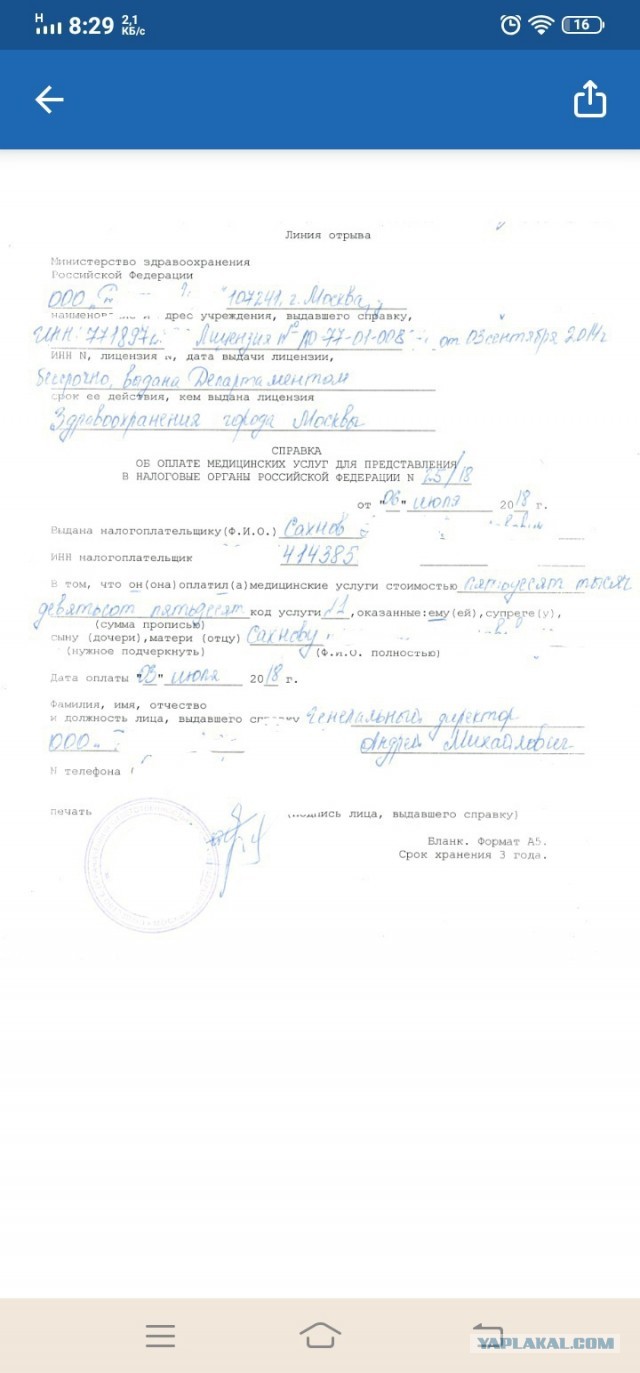 Н 8:29 2,1 КБ/с 16
Линия отрыва
Министерство здравоохранения
Российской Федерации
ООО 107241, г. Москва,
дрес учреждения, выдавшего справку,
ИНН: 771897 Лицензия № ЛО-77-01-008 от 03 сентября 2014г
ИНН N, лицензия N, дата выдачи лицензии,
бессрочно, выдана Департаментом
срок ее действия, кем выдана лицензия
Здравоохранения города Москвы
СПРАВКА
ОБ ОПЛАТЕ МЕДИЦИНСКИХ УСЛУГ ДЛЯ ПРЕДСТАВЛЕНИЯ
В НАЛОГОВЫЕ ОРГАНЫ РОССИЙСКОЙ ФЕДЕРАЦИИ N 25/18
от "06" июля 2018 г.
Выдана налогоплательщику(Ф.И.О.) Сахнов
ИНН налогоплательщик 414385
В том, что он(она)оплатил(а)медицинские услуги стоимостью пятьдесят тысяч
девятьсот пятьдесят код услуги 1,оказанные:ему(ей),супруге(у),
(сумма прописью)
сыну (дочери),матери (отцу) Сахнову
(нужное подчеркнуть) (Ф.И.О. полностью)
Дата оплаты " " июля 2018 г.
Фамилия, имя, отчество
и должность лица, выдавшего справку Генеральный директор
ООО Андрей Михайлович
N телефона
печать (подпись лица, выдавшего справку)
Бланк. Формат А5.
Срок хранения 3 года.
YAPLAKAL.COM